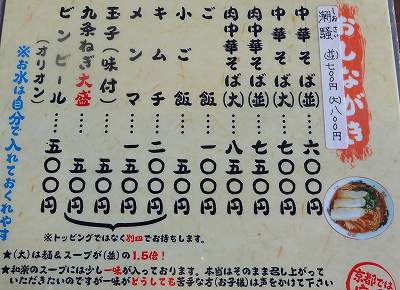 おしながき
潮騒 しおさい (並)七〇〇円 (大)八〇〇円
中華そば(並)……六〇〇円
中華そば(大)……七〇〇円
肉中華そば(並)…七五〇円
肉中華そば(大)…八五〇円
ご飯……一〇〇円
小ご飯……五〇円
キムチ……二〇〇円
メンマ……一五〇円
玉子(味付)……五〇円
九条ねぎ大盛……五〇円
ビンビール……五〇〇円
(オリオン)
※お水は自分で入れておくれやす
※トッピングではなく別皿でお持ちします。
★(大)は麺&スープが(並)の1.5倍!
★和楽のスープには少し一味が入っております。本当はそのまま召し上がって
いただきたいのですが一味がどうしても苦手な方(お子様)は声をかけて下さい
京都では